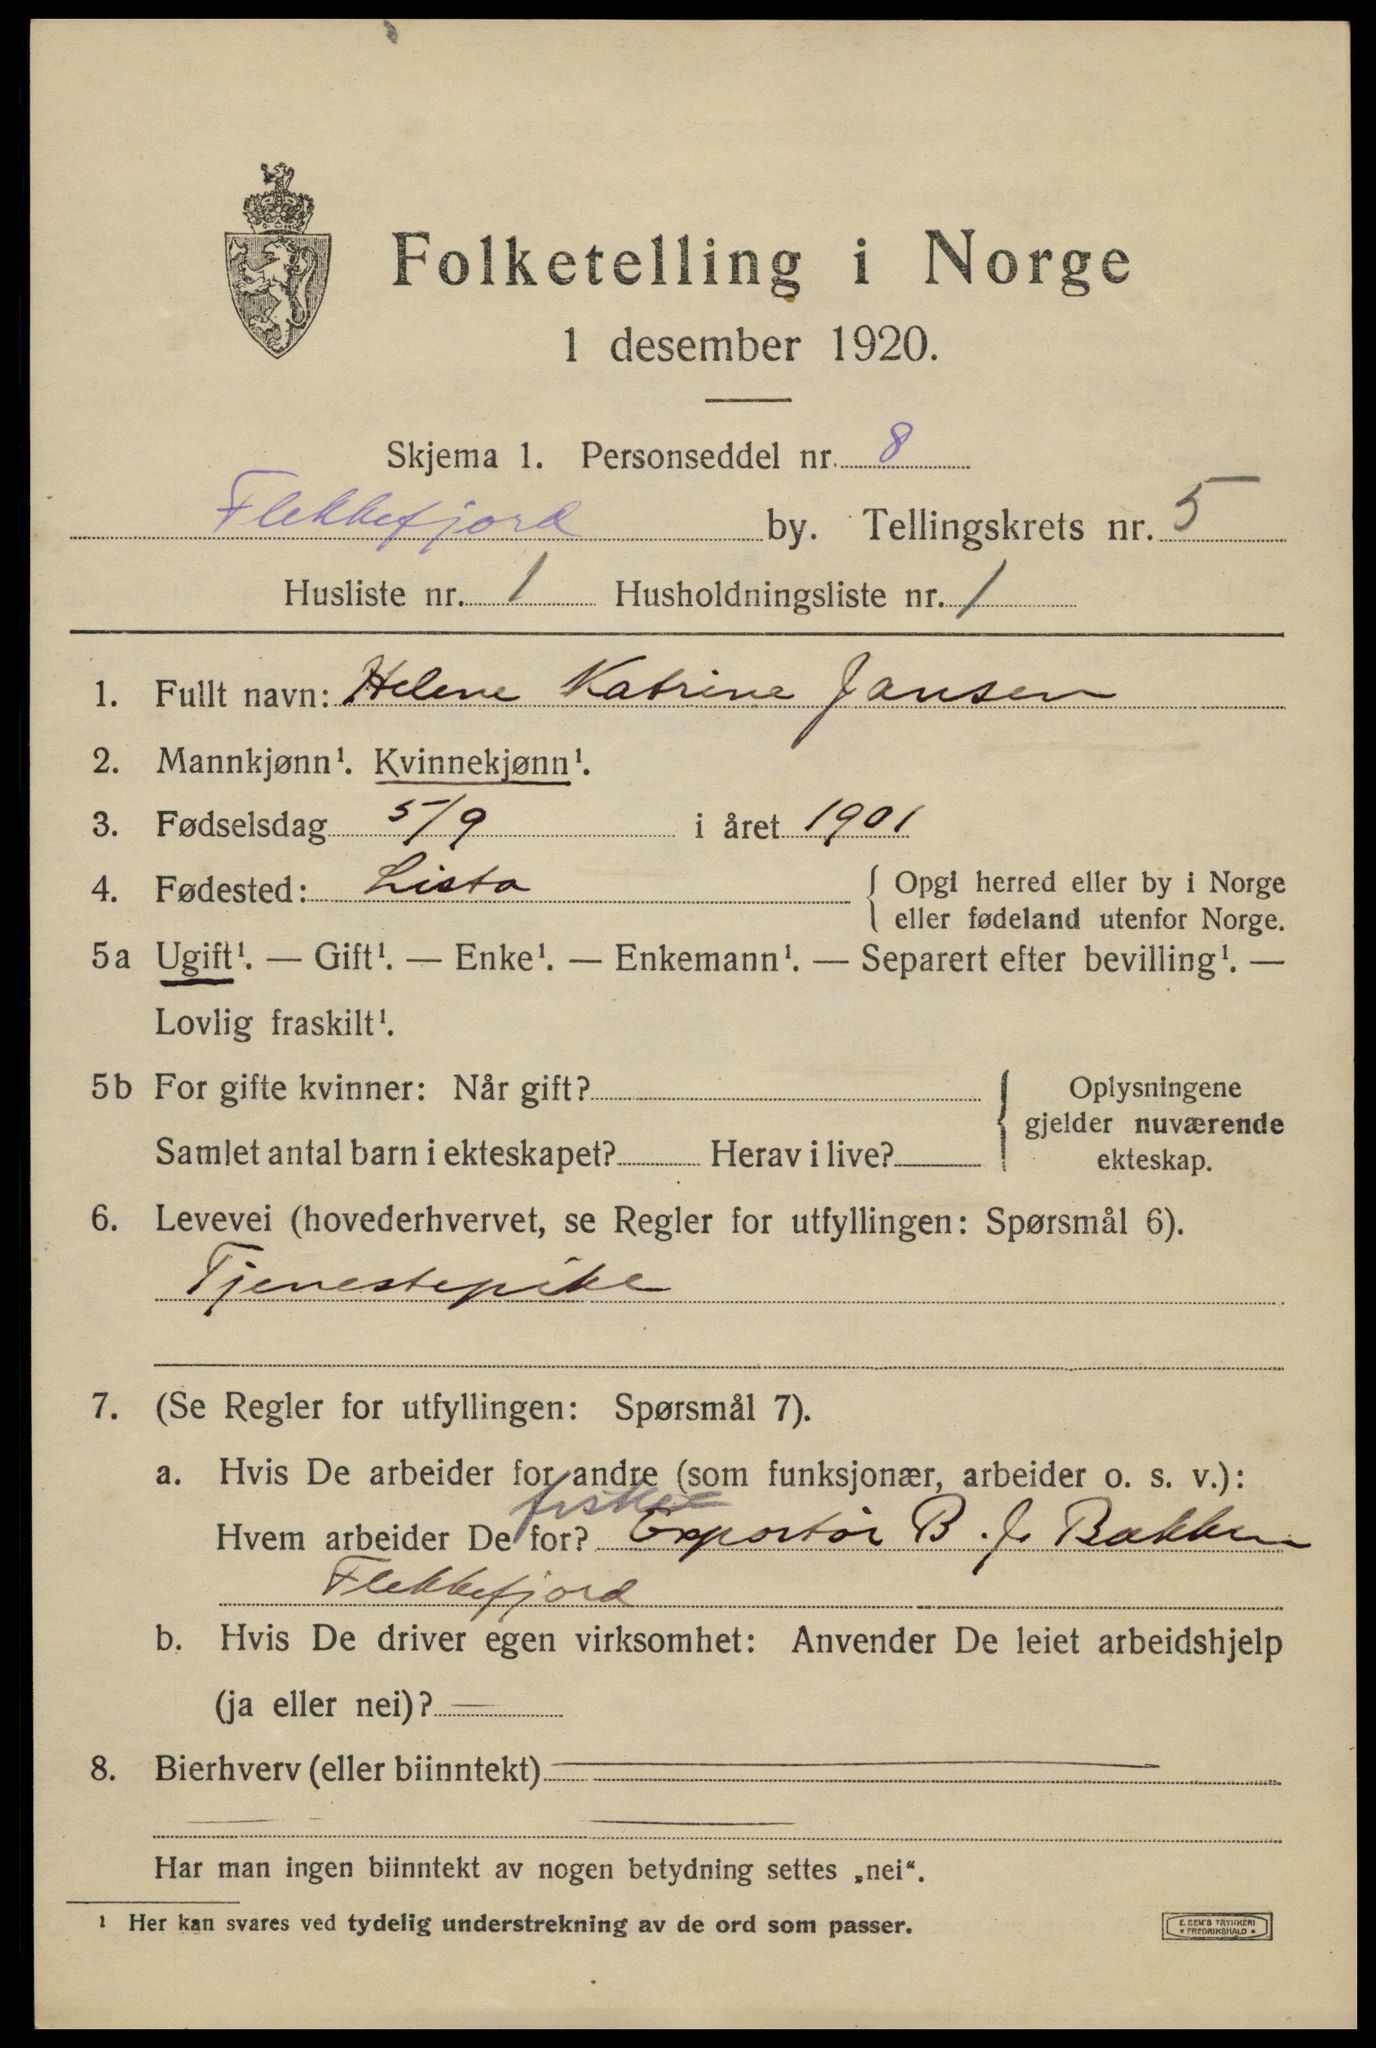 Folketelling i Norge
1 desember 1920.
Skjema 1. Personseddel nr. 8
Flekkefjord by. Tellingskrets nr. 5
Husliste nr. 1 Husholdningsliste nr. 1
1. Fullt navn: Helene Katrine Jansen
2. Mannkjønn¹. Kvinnekjønn¹.
3. Fødselsdag 5/9 i året 1901
4. Fødested: Lista { Opgi herred eller by i Norge
eller fødeland utenfor Norge.
5a Ugift¹. — Gift¹. — Enke¹. — Enkemann¹. — Separert efter bevilling¹. —
Lovlig fraskilt¹.
5b For gifte kvinner: Når gift? { Oplysningene
gjelder nuværende
Samlet antal barn i ekteskapet? Herav i live? ekteskap.
6. Levevei (hovederhvervet, se Regler for utfyllingen: Spørsmål 6).
Tjenestepike
7. (Se Regler for utfyllingen: Spørsmål 7).
a. Hvis De arbeider for andre (som funksjonær, arbeider o. s. v.):
fiske
Hvem arbeider De for? Exportør B. J. Bakken
Flekkefjord
b. Hvis De driver egen virksomhet: Anvender De leiet arbeidshjelp
(ja eller nei)? —
8. Bierhverv (eller biinntekt) —
— —
Har man ingen biinntekt av nogen betydning settes „nei“.
¹ Her kan svares ved tydelig understrekning av de ord som passer.
E. SEM'S TRYKKERI
FREDRIKSHALD